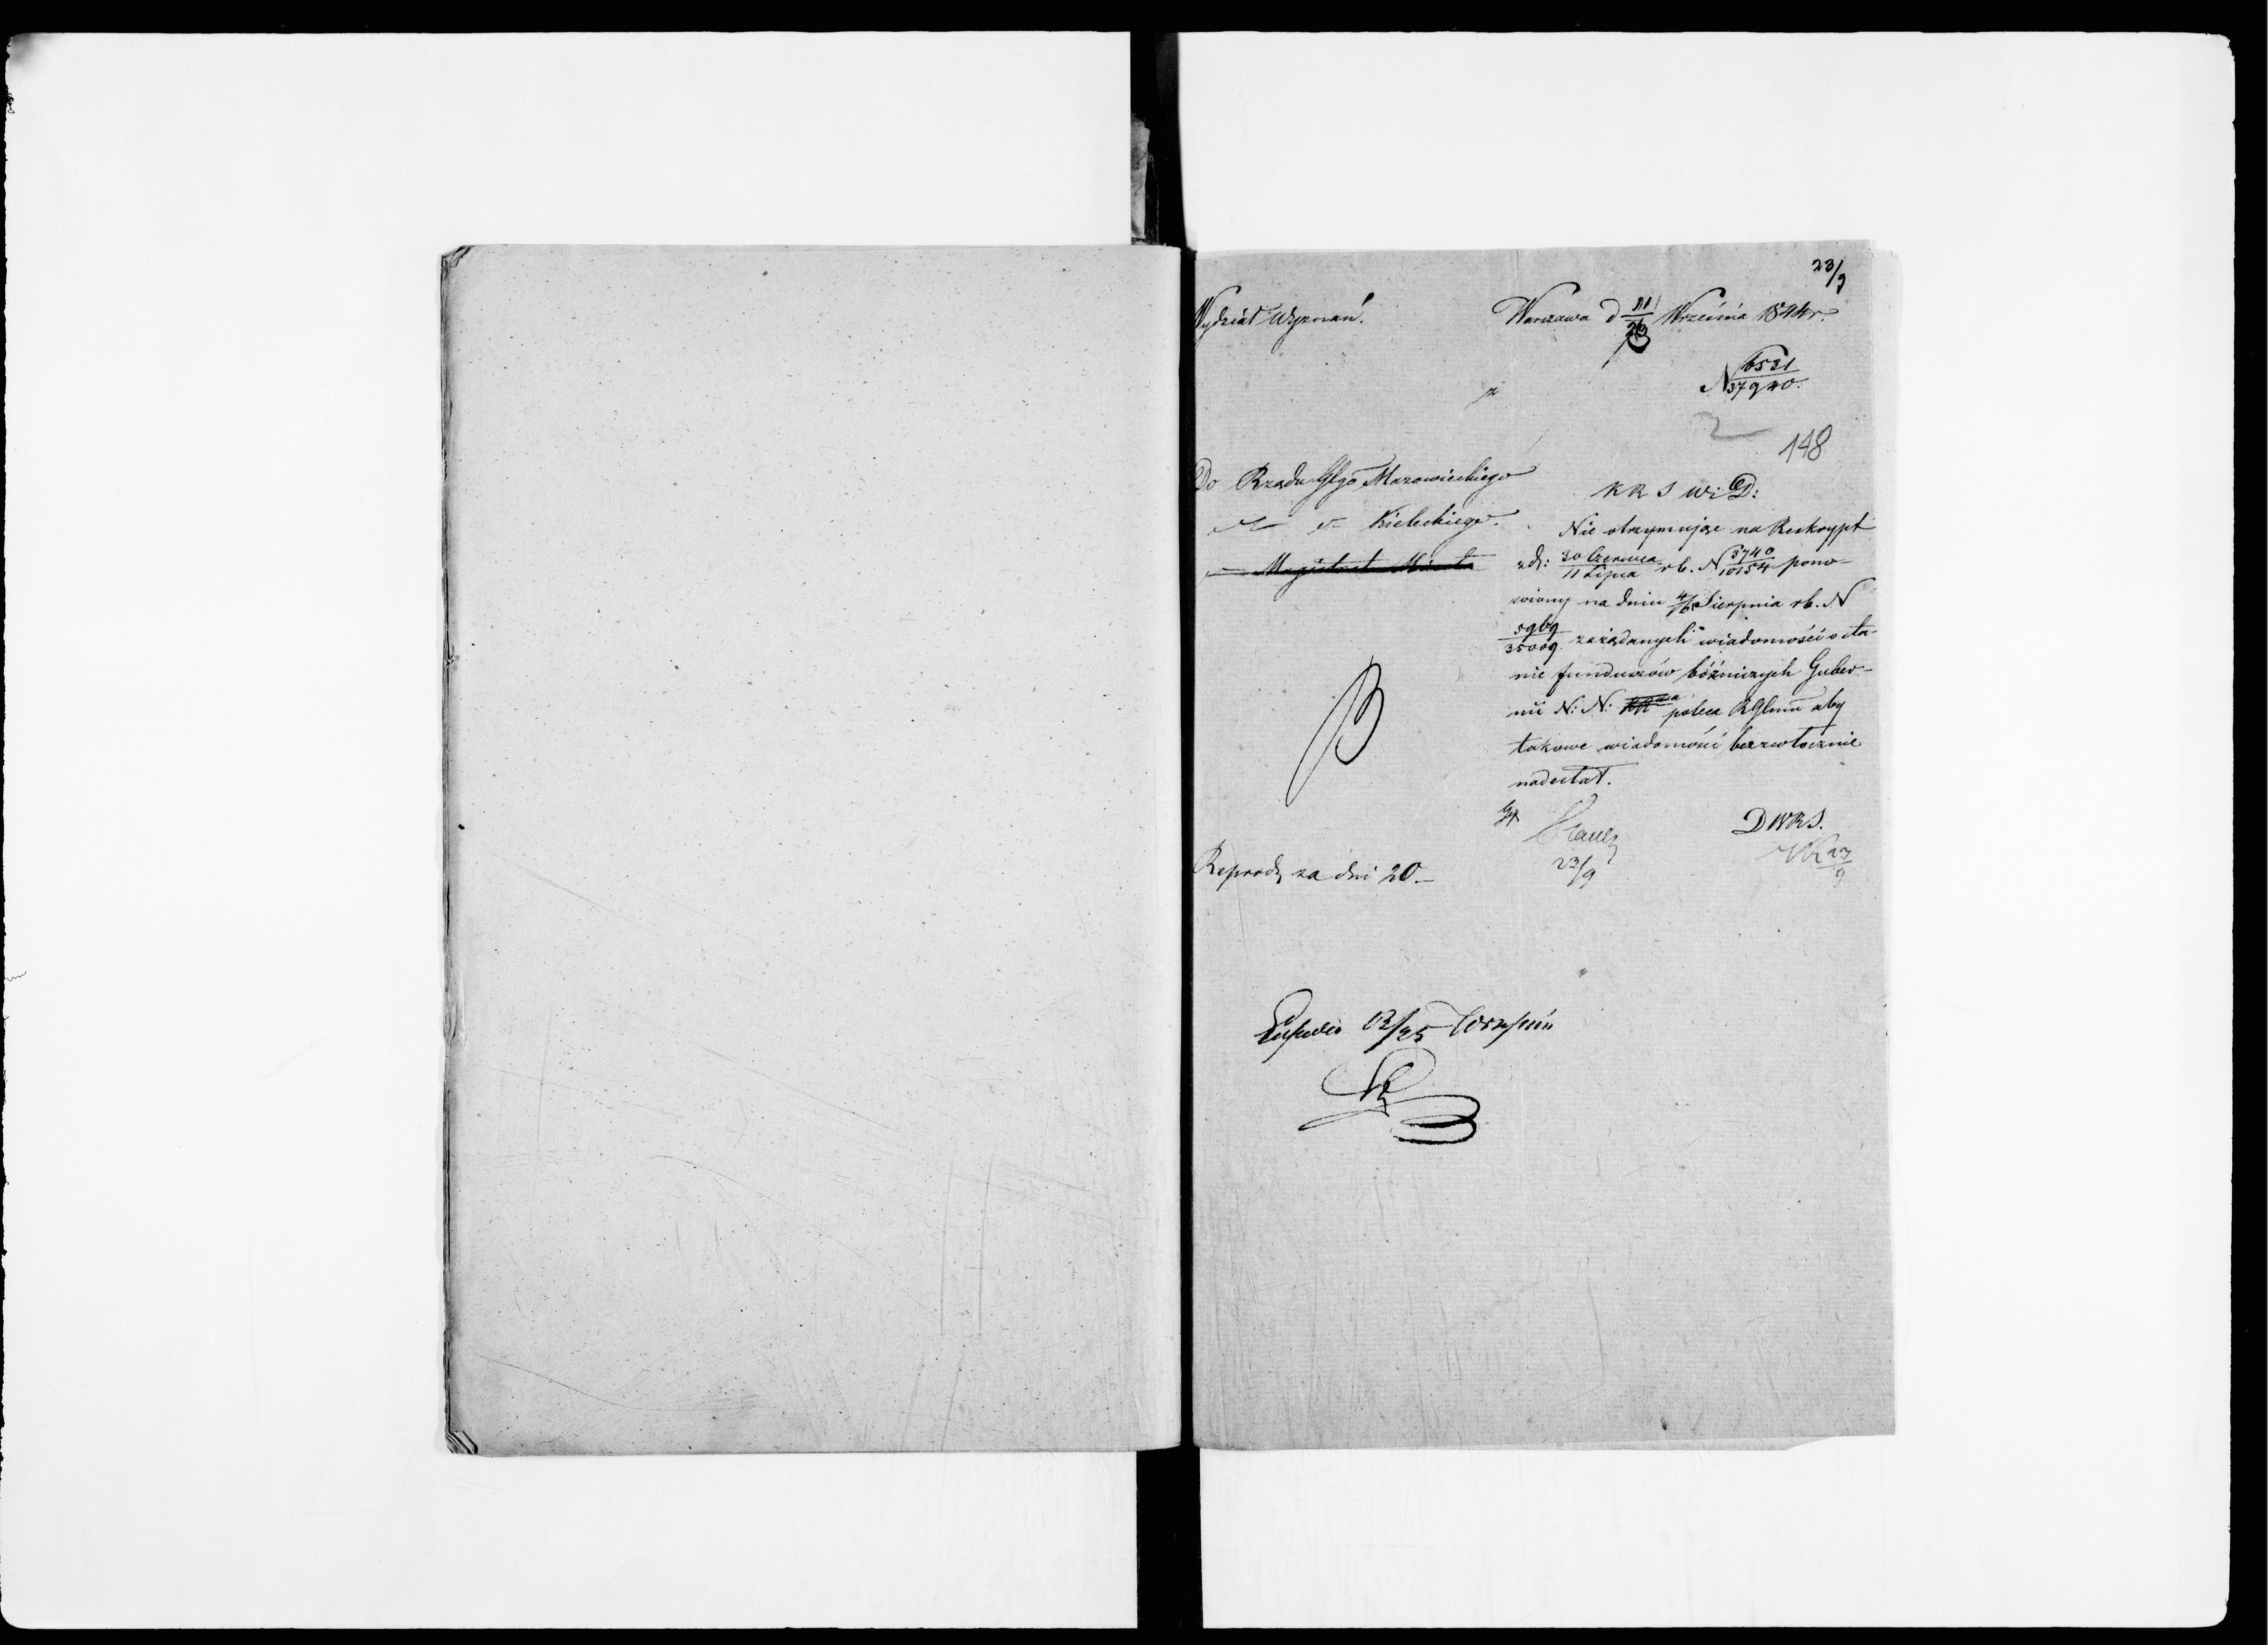 23/9
Wydział Wyznań.
Warszawa d 11/23 Września 1844 r.
N 6531/37920.
148
Do Rządu Glgo Mazowieckiego
Kieleckiego.
Magistrat Miasta
K R S W i D:
Nie otrzymując na Reskrypt
z d: 30 Czerwca/11 Lipca r b. N 3740/10154 pono-
wiony na dniu 4/16 Sierpnia r b. N
5969/35009. zażądanych wiadomości o sta-
nie funduszów bóżniczych Guber-
nii N: N: poleca RGlmu aby
takowe wiadomości bezzwłocznie
nadesłał.
D W R S.
23/9
23/9
Reprod, za dni 20.–
13/25 Września